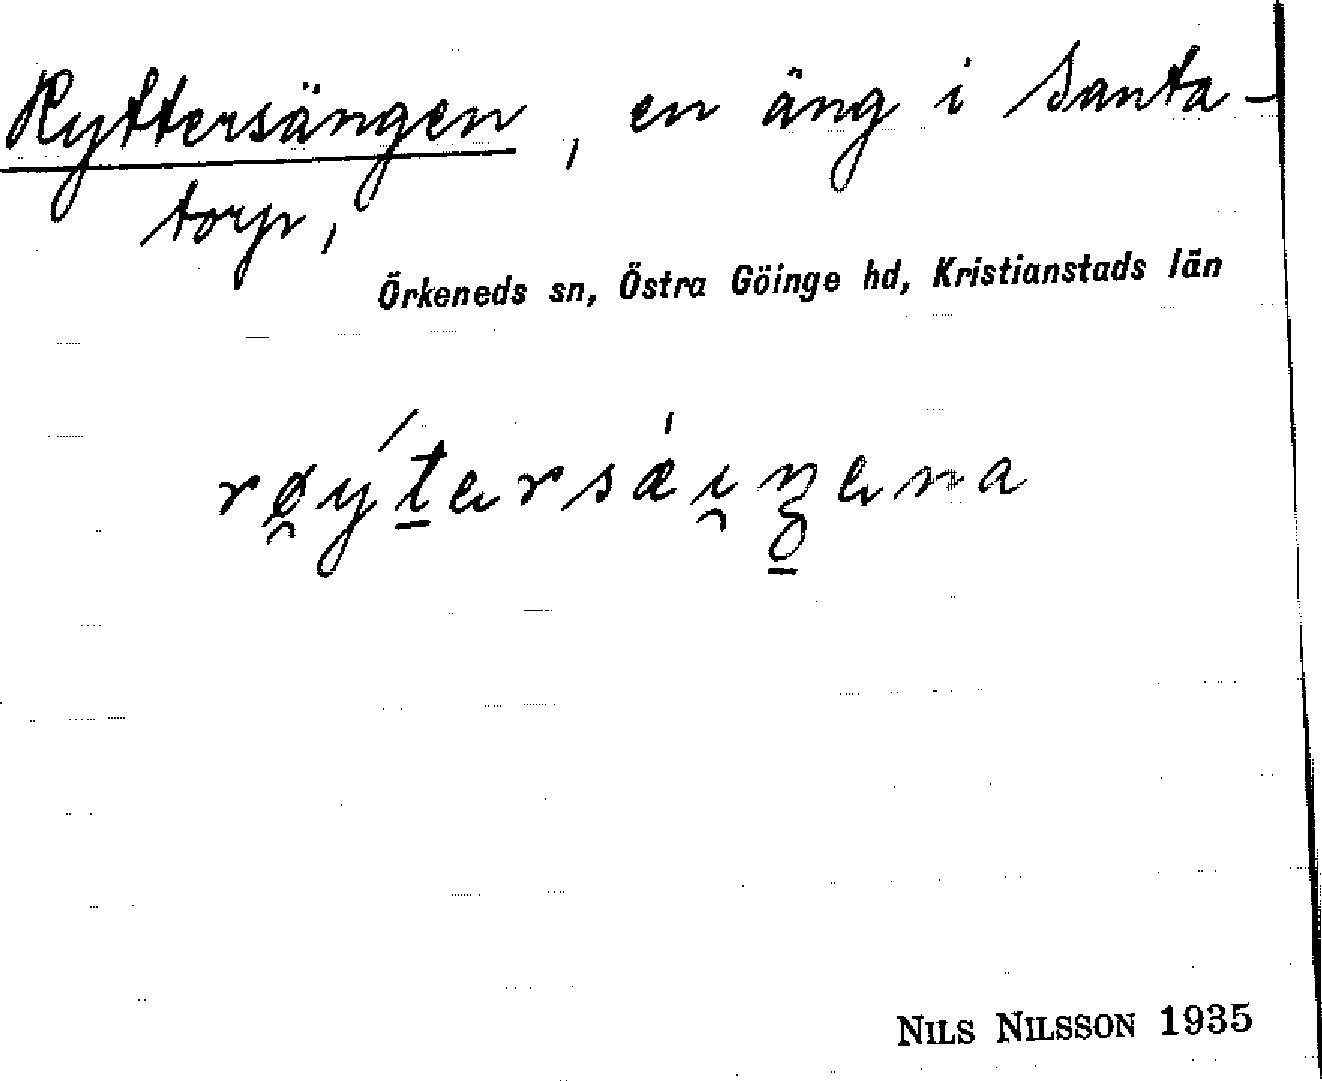 Ryttersängen, en äng i Santa-
torp,
Örkeneds sn, Östra Göinge hd, Kristianstads län
NILS NILSSON 1935